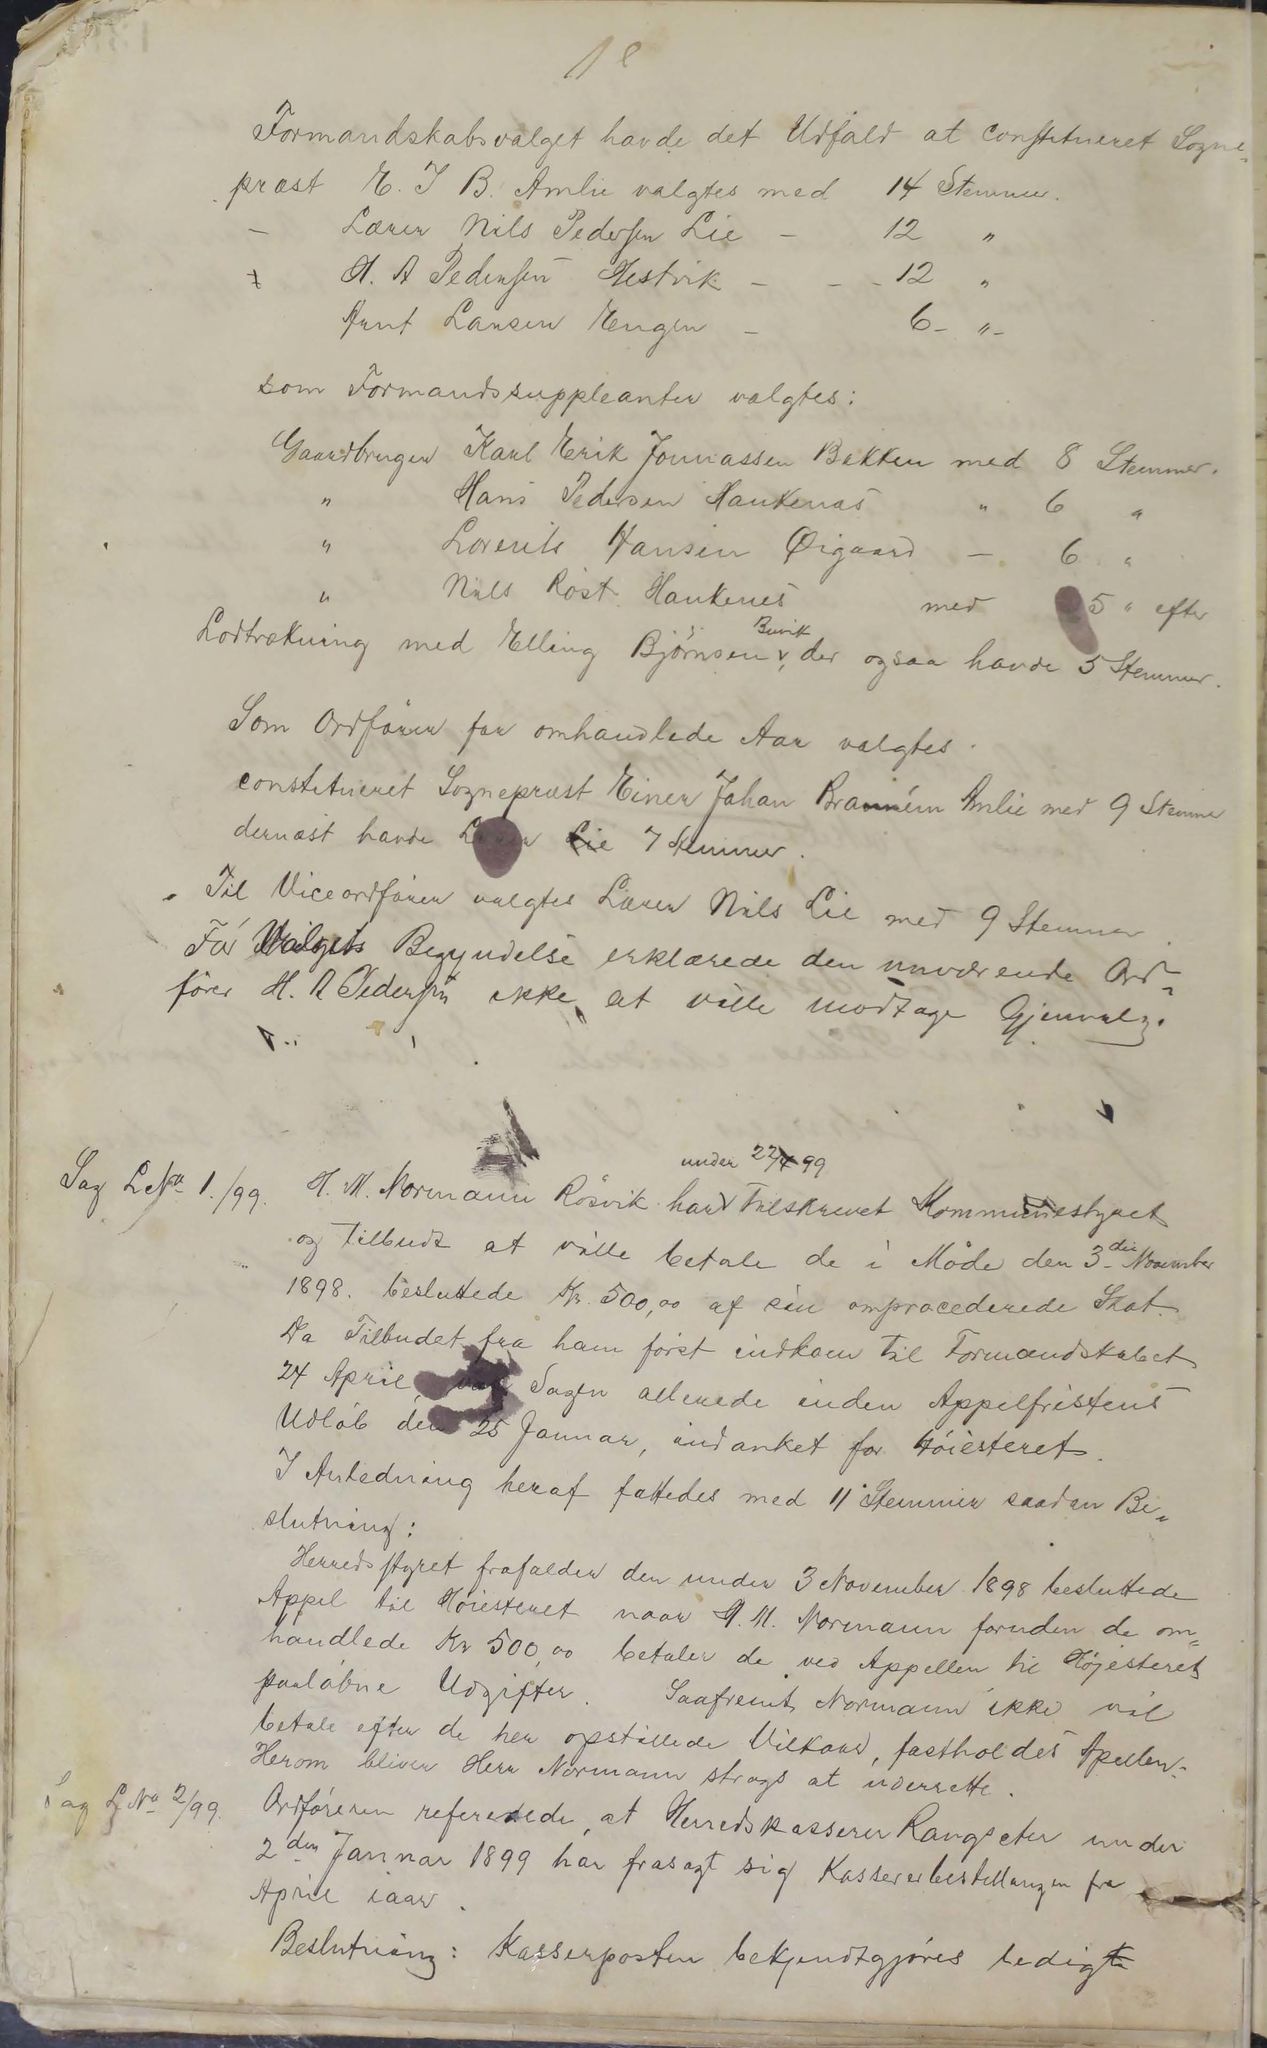 18
Formandskabsvalget havde det Udfald at constitueret Sogne-
præst E. J B. Amlie valgtes med 14 Stemmer.
- Lærer Nils Pedersen Lie - 12 "
H. A Pedersen Hestvik - - - 12 "
Arnt Larsen Engen - 6 - " -
som Formandssuppleanter valgtes:
Gaardbruger Karl Erik Jonnassen Bakken med 8 Stemmer.
" Hans Pedersen Haukenæs " 6 "
" Lorents Hansen Øigaard - 6 "
" Nils Røst Haukenes med 5 " efter
Lodtrækning med Elling Bjørnsen Buvik, der ogsaa havde 5 Stemmer.
Som Ordfører for omhandlede Aar valgtes.
constitueret Sognepræst Einer Johan Amlie med 9 Stemmer
dernæst havde Lærer Lie 7 Stemmer.
Til Viceordfører valgtes Lærer Nils Lie med 9 Stemmer.
Før Valgets Begyndelse erklærede den nuværende Ord-
fører H. A Pedersen ikke at ville modtage Gjenvalg.
under 22/4 99
Sag L No 1./99. H. M. Normann Røsvik har tilskrevet Kommunestyret
og tilbudt at ville betale de i Møde den 3die November
1898. besluttede Kr. 500,00 af sin omprocederede Skat.
Da Tilbudet fra ham først indkom til Formandskabet
24 April, var Sagen allerede inden Appelfristens
Udløb den 25 Januar, indanket for Høiesteret.
I Anledning heraf fattedes med 11 Stemmer saadan Be-
slutning:
Herredsstyret frafalder den under 3 November 1898 besluttede
Appel til Høiesteret naar H. M. Normann foruden de om-
handlede Kr 500,00 betaler de ved Appellen til Højesteret
paaløbne Udgifter. Saafremt Normann ikke vil
betale efter de her opstillede Vilkaar, fastholdes Apellen.
Herom bliver Herr Normann strags at underrette.
Sag L No 2/99. Ordføreren refererede, at Herredskasserer Rangseter under
2den Januar 1899 har frasagt sig Kassererbestillingen fra
April iaar.
Beslutning: Kasserposten bekjendtgjøres ledig